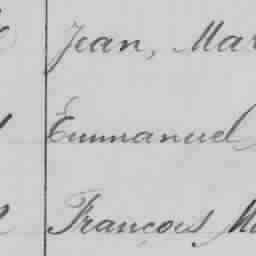 Jean, Mar
Emmanuel
François M